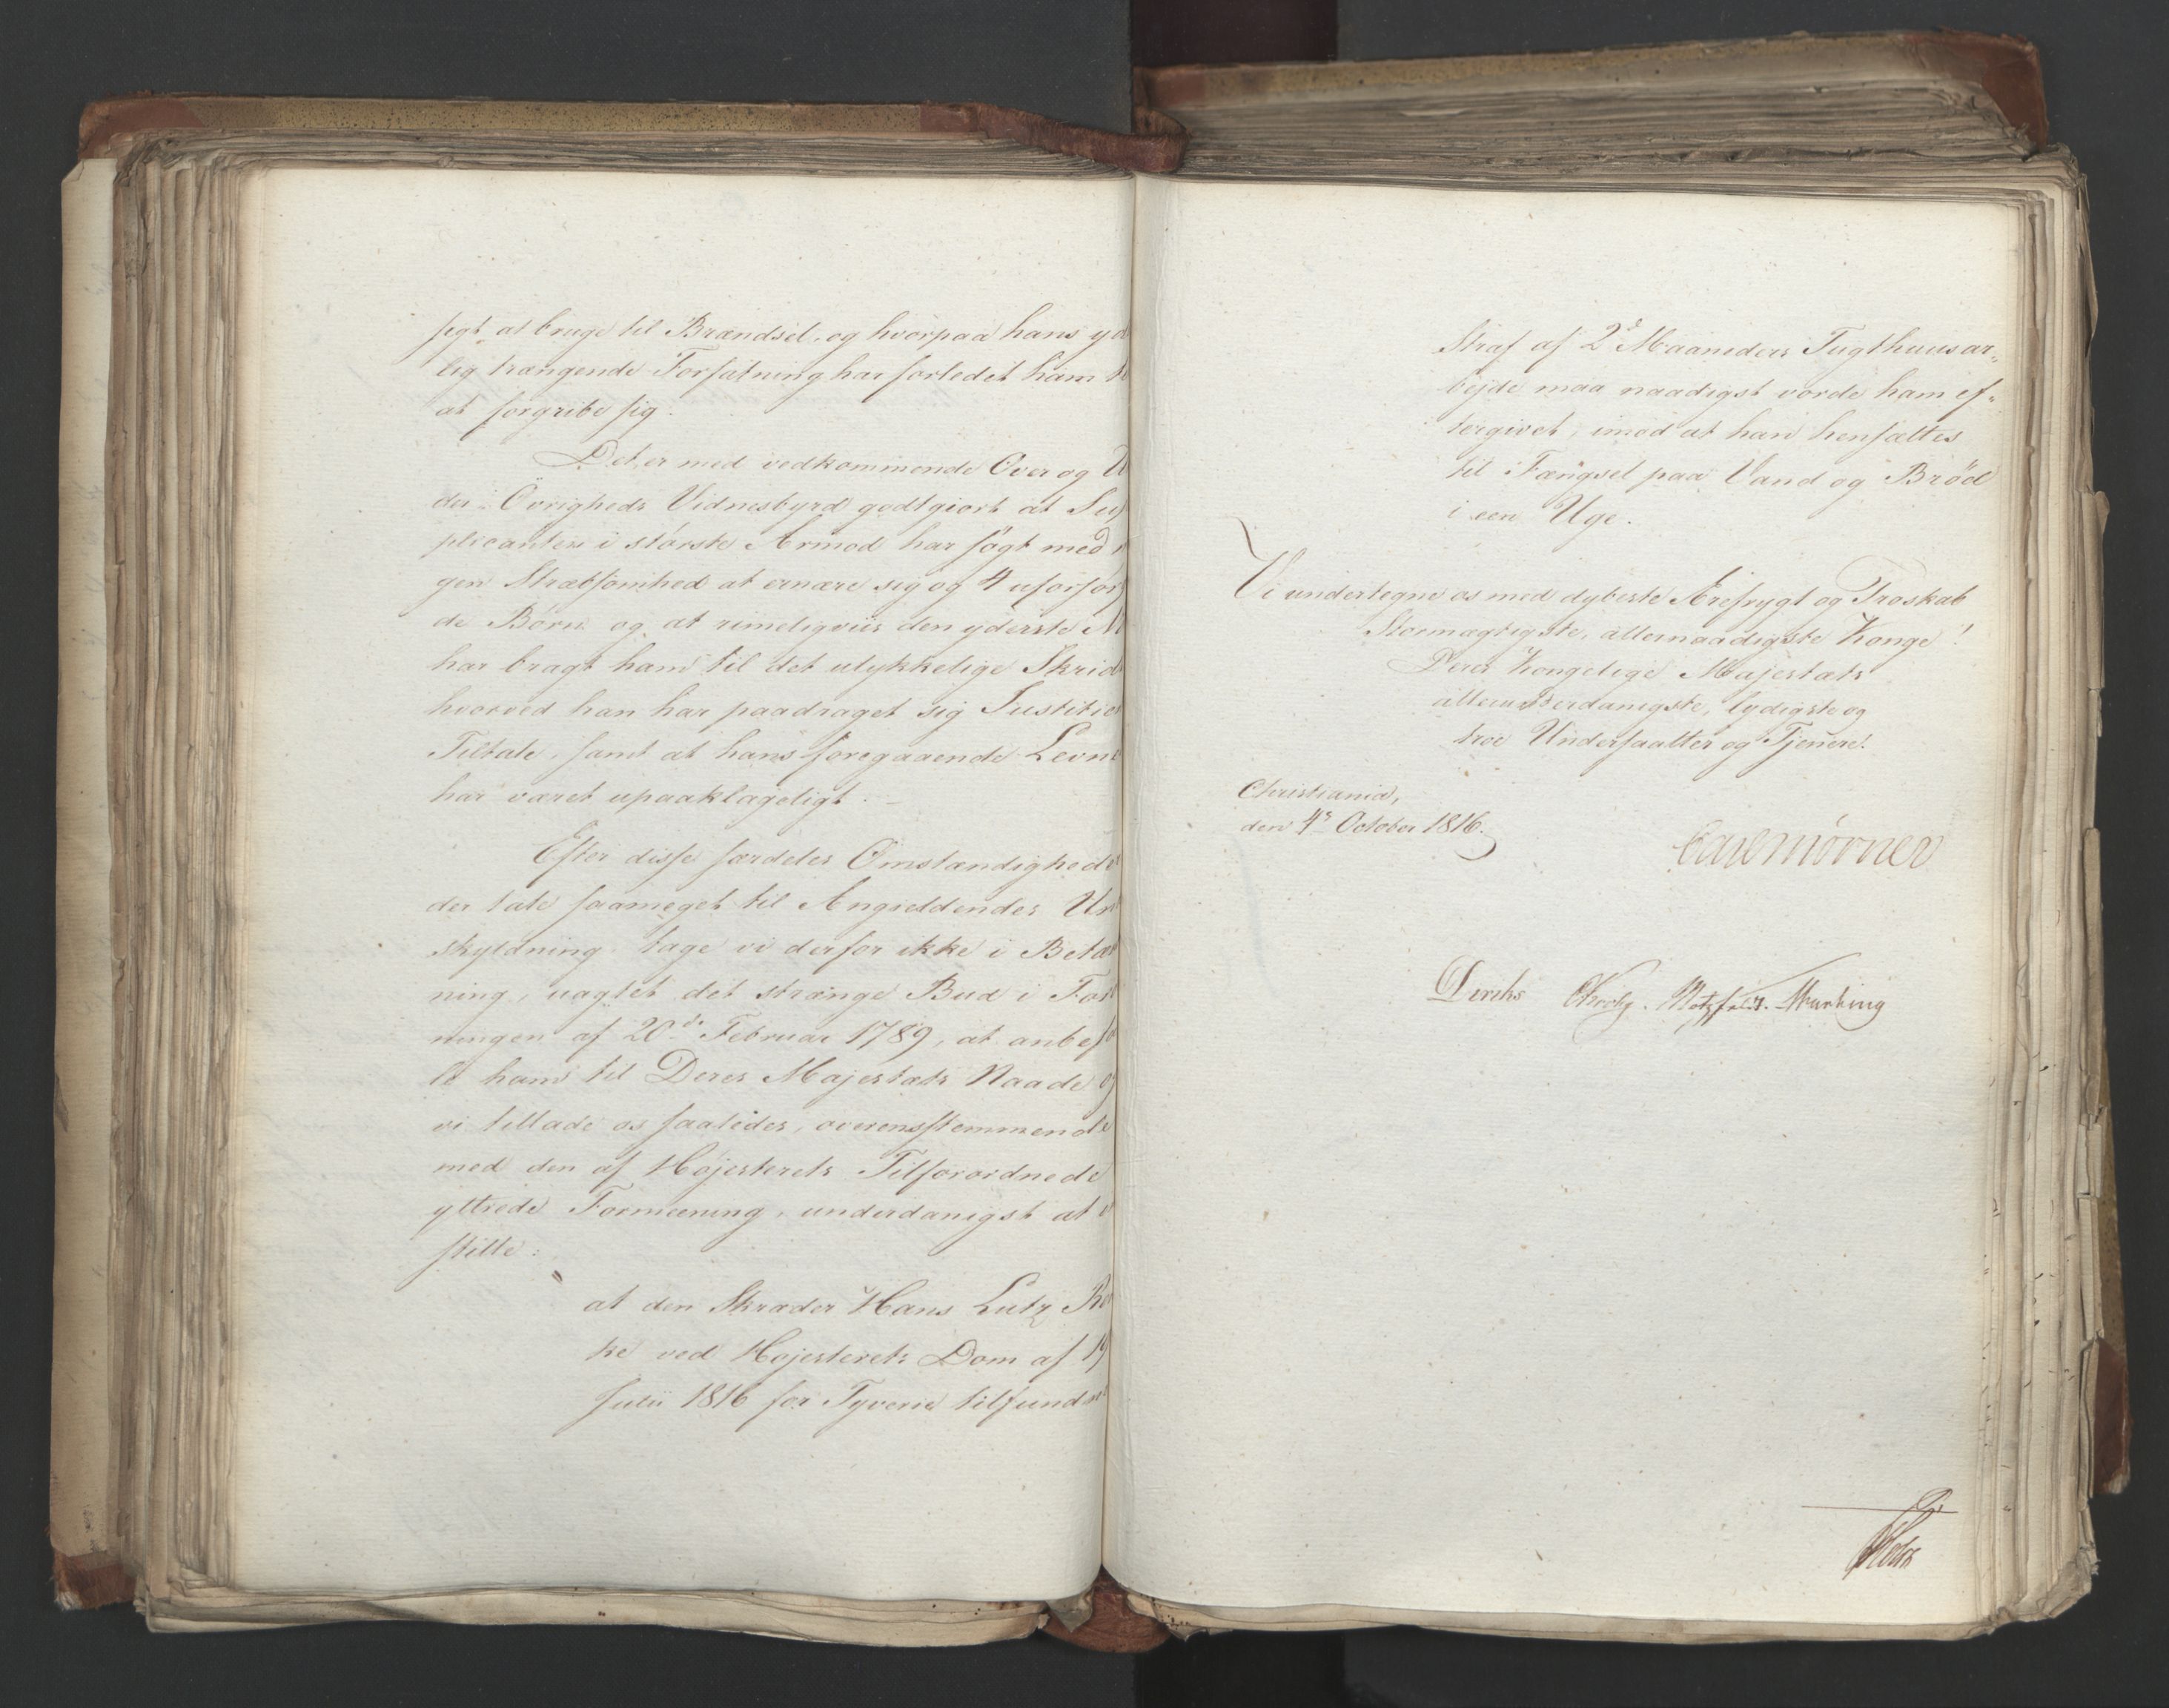 søgt at bruge til Brændsel, og hvorpaa hans yd
lig trængende Forfatning har forledet ham
at forgribe sig.
Det er med vedkommende Over og U
der-Övrigheds Vidnesbyrd godtgiort at Sup
plicanten i største Armod har søgt med
gen Stræbsomhed at ernære sig og 4 uforsørg
de Børn og at rimeligviis den yderste
har bragt ham til det ulykkelige Skridt
hvorved han har paadraget sig Justitiens
Tiltale, samt at hans foregaaende Levne
har været upaaklageligt. –
Efter disse særdeles Omstændigheder
der tale saameget til Angieldendes Und
skyldning, tage vi derfor ikke i Betæn
ning, uagtet det strænge Bud i For
ningen af 20de Februar 1789, at anbefa
le ham til Deres Majestæts Naade og
vi tillade os saaledes, overensstemmende
med den af Højesterets Tilforordnede
yttrede Formeening, underdanigst at
stille:
at den Skræder Hans Lutz
ke ved Højesterets Dom af 19
Julii 1816 for Tyverie tilfundne
Straf af 2de Maaneders Tugthuusar„
bejde maa naadigst vorde ham ef„
tergivet, imod at han hensættes
til Fængsel paa Vand og Brød
i een Uge.
Vi undertegne os med dybeste Ærefrygt og Troskab
Stormægtigste, allernaadigste Konge!
Deres Kongelige Majestæts
allerunderdanigste, lydigste og
troe Undersaatter og Tjenere.
Christiania,
den 4de October 1816.
Carl Mörner
Diriks Motzfeldt.